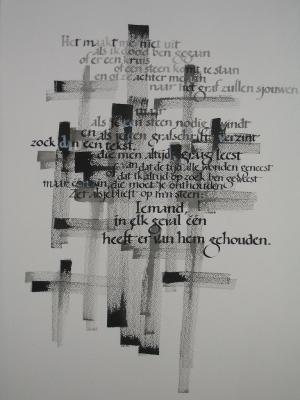 Het maakt me niet uit
als ik dood ben gegaan
of er een kruis
of een steen komt te staan
en of ze achter me aan
naar het graf zullen sjouwen
maar
als je een steen nodig vindt
en als je een grafschrift verzint
zoek dan een tekst,
die men altijd terug leest
of van dat de tijd alle wonden geneest
of dat ik altijd op zoek ben geweest
maar één, die moet je onthouden
Zet asjeblieft op m'n steen:
Iemand,
in elk geval één
heeft er van hem gehouden.